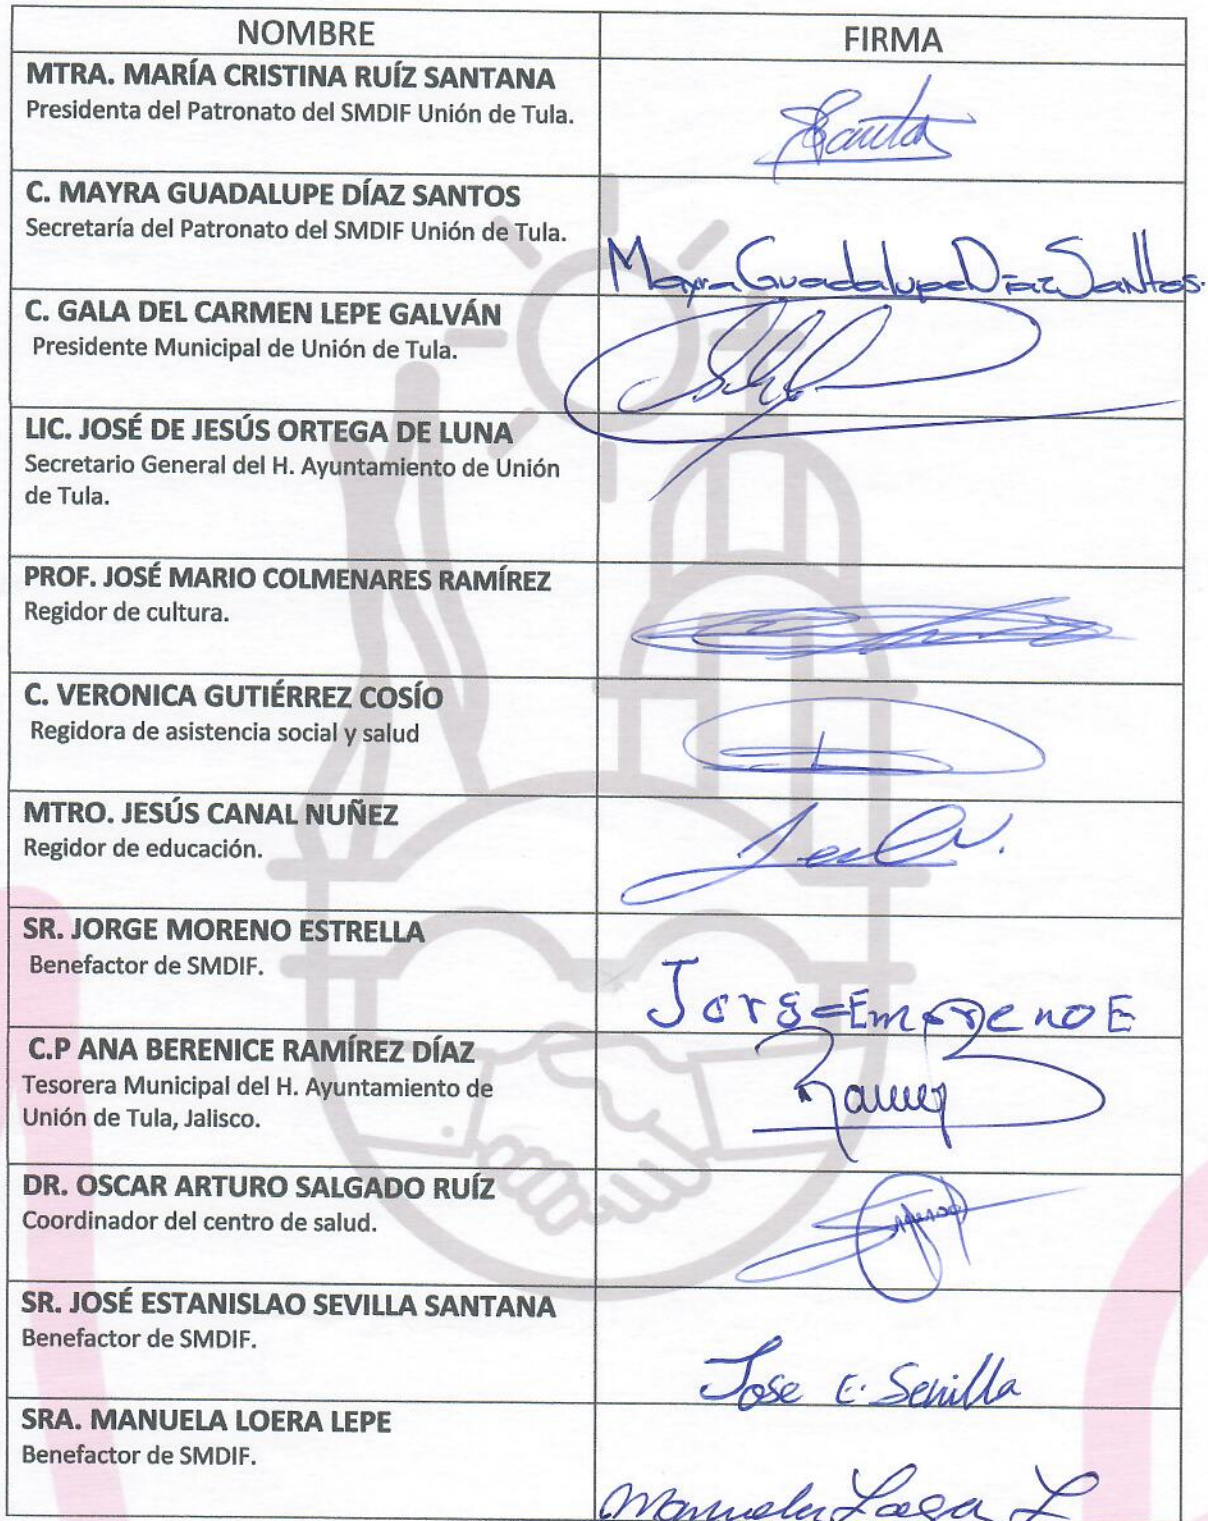 NOMBRE
FIRMA
MTRA. MARÍA CRISTINA RUÍZ SANTANA
Presidenta del Patronato del SMDIF Unión de Tula.
C. MAYRA GUADALUPE DÍAZ SANTOS
Secretaría del Patronato del SMDIF Unión de Tula.
Mayra Guadalupe Díaz Santos.
C. GALA DEL CARMEN LEPE GALVÁN
Presidente Municipal de Unión de Tula.
LIC. JOSÉ DE JESÚS ORTEGA DE LUNA
Secretario General del H. Ayuntamiento de Unión
de Tula.
PROF. JOSÉ MARIO COLMENARES RAMÍREZ
Regidor de cultura.
C. VERONICA GUTIÉRREZ COSÍO
Regidora de asistencia social y salud
MTRO. JESÚS CANAL NUÑEZ
Regidor de educación.
SR. JORGE MORENO ESTRELLA
Benefactor de SMDIF.
C.P ANA BERENICE RAMÍREZ DÍAZ
Tesorera Municipal del H. Ayuntamiento de
Unión de Tula, Jalisco.
DR. OSCAR ARTURO SALGADO RUÍZ
Coordinador del centro de salud.
SR. JOSÉ ESTANISLAO SEVILLA SANTANA
Benefactor de SMDIF.
Jose E. Sevilla
SRA. MANUELA LOERA LEPE
Benefactor de SMDIF.
Manuela Loera L